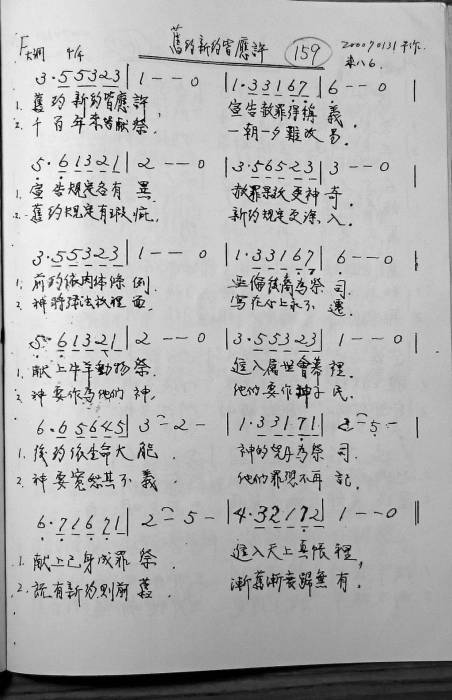 舊約新約皆應許 159
F大調 4/4 20070131 下作.
來八6.
3·55323|1--0 |1·33167|6--0|
1. 舊約新約皆應許, 宣告赦罪得稱義.
2. 千百年來皆獻祭, 一朝一夕難改易.
5·61321|2--0 |3·56523|3--0|
1. 宣告規定各有異. 赦罪果效更神奇.
2. 舊約規定有瑕疵, 新約規定更深入.
3·55323|1--0 |1·33167|6--0|
1. 前約依肉體條例. 亞倫後裔為祭司.
2. 神將律法放裡面, 寫在心上永不遷.
5·61321|2--0 |3·55323|1--0|
1. 獻上牛羊動物祭. 進入屬世會幕裡.
2. 神要作為他們神, 他們要作神子民.
6·65645|3-2- |1·33171|2-5-|
1. 後約依生命大能. 神的兒子為祭司.
2. 神要寬恕其不義. 他們罪愆不再記.
6·71671|2-5- |4·32172|1--0||
1. 獻上己身成罪祭. 進入天上真帳裡,
2. 說有新約則前舊. 漸舊漸衰歸無有.